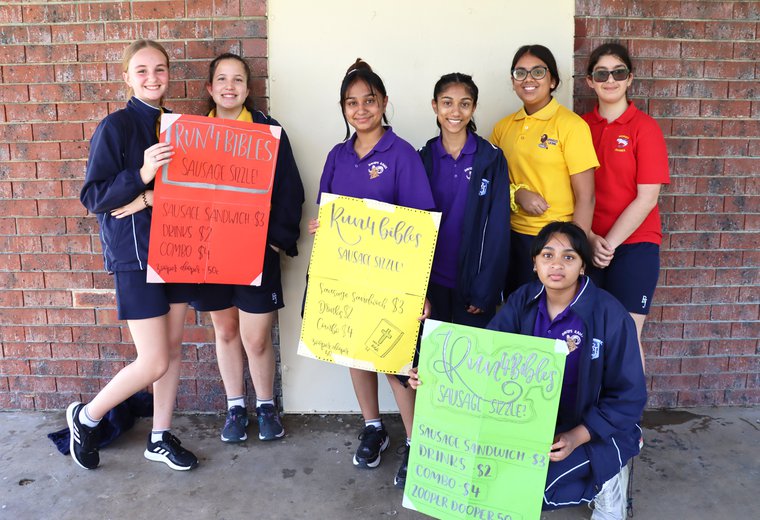 RUN4BIBLES
SAUSAGE SIZZLE!
SAUSAGE SANDWICH $3
DRINKS $2
COMBO $4
zooper dooper - 50c
Run4Bibles
SAUSAGE SIZZLE!
Sausage Sandwich $3
Drinks $2
Combo $4
zooper dooper
Run4Bibles
SAUSAGE SIZZLE!
SAUSAGE SANDWICH $3
DRINKS $2
COMBO $4
ZOOPER DOOPER 50c